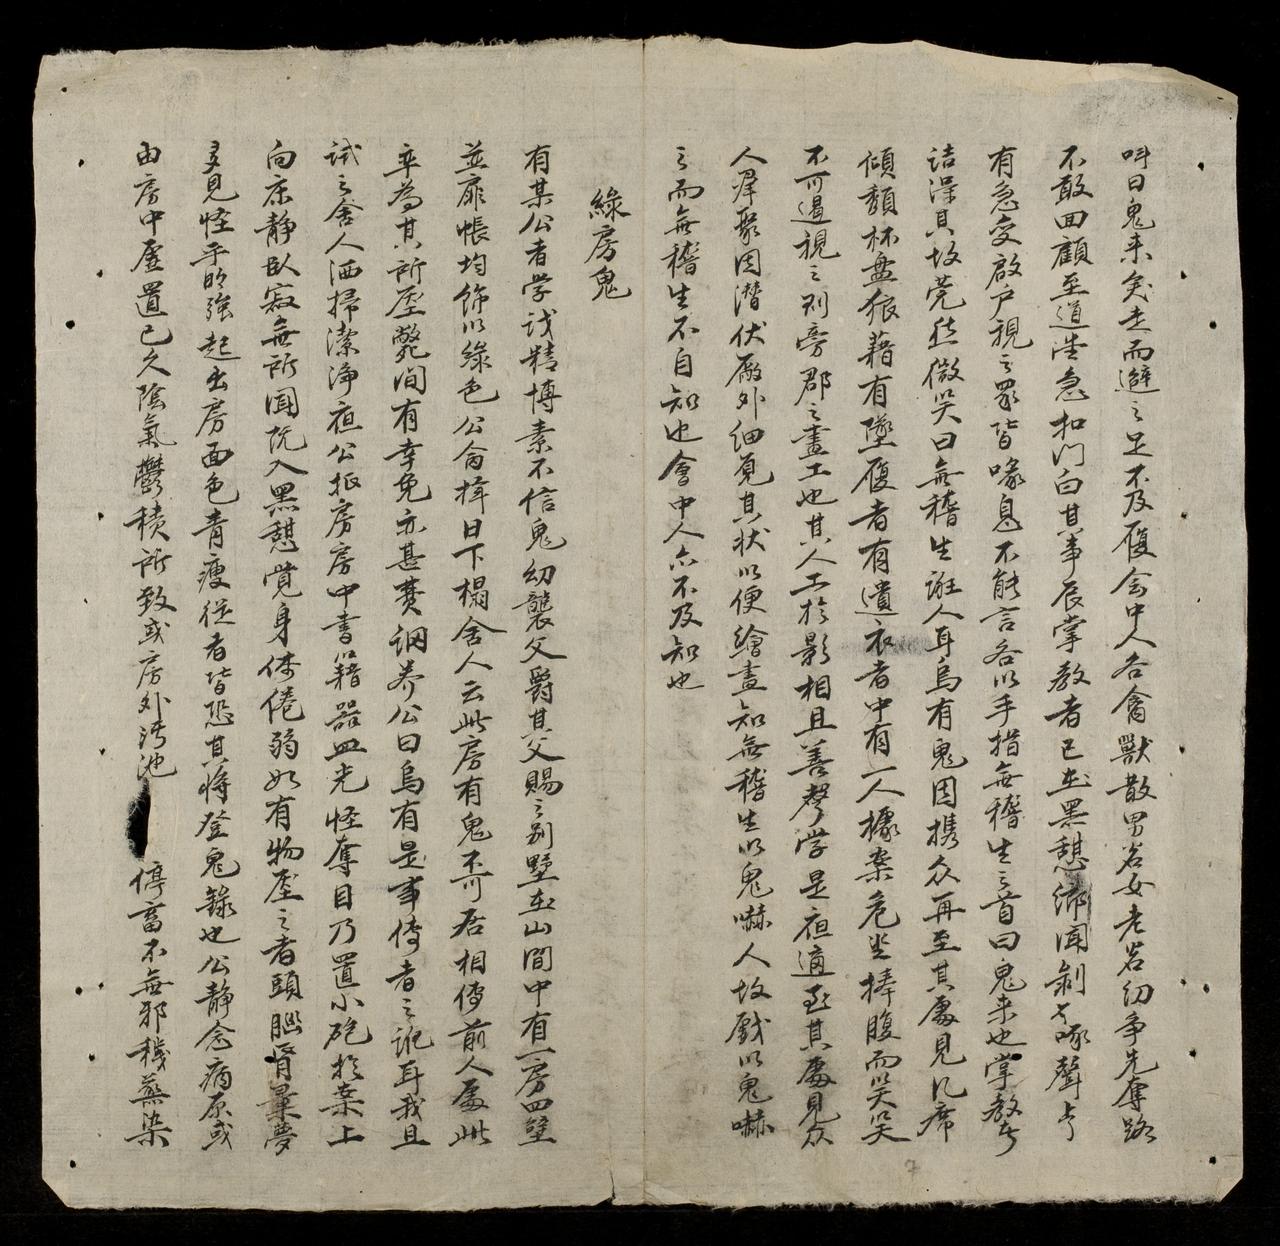 呌曰鬼来矣走而避之足不及履会中人各禽獸散男若女老若幼争先奪路
不敢回顧至道堂急扣门白其事辰掌教者已在黑憩鄉闻剥啄聲
有急变啟户視之眾皆喙息不能言各以手指無稽生之首曰鬼来也掌教
詰淂其故莞然微笑曰無稽生誑人耳烏有鬼因携众再至其處見几席
傾頽杯盘狼藉有墜履者有遺衣者中有一人據案危坐捧腹而笑笑
不可遏視之則旁郡之畫工也其人工於影相且善聲学是夜適至其處見众
人羣聚因潜伏廠外细覓其状以便繪畫知無稽生以鬼嚇人故戲以鬼嚇
之而無稽生不自知也會中人亦不及知也
綠房鬼
有某公者学识精博素不信鬼幼襲父爵其父賜之别墅在山間中有一房四壁
並扉帳均飾以綠色公命擇日下榻舍人云此房有鬼不可居相傳前人處此
卒為其所压斃间有幸免亦甚費調养公曰烏有是事傳者之訛耳我且
試之舍人洒掃潔净夜公抵房房中書籍器皿光怪奪目乃置小砲於案上
向床静臥寂無所闻阮入黑憩覚身体倦弱如有物压之者頭腦胥暈夢
多見怪乎明強起出房面色青瘦従者皆恐其将登鬼籙也公静念病原或
由房中屋置已久陰氣鬱積所致或房外汚池停畜不無邪穢薰染
7